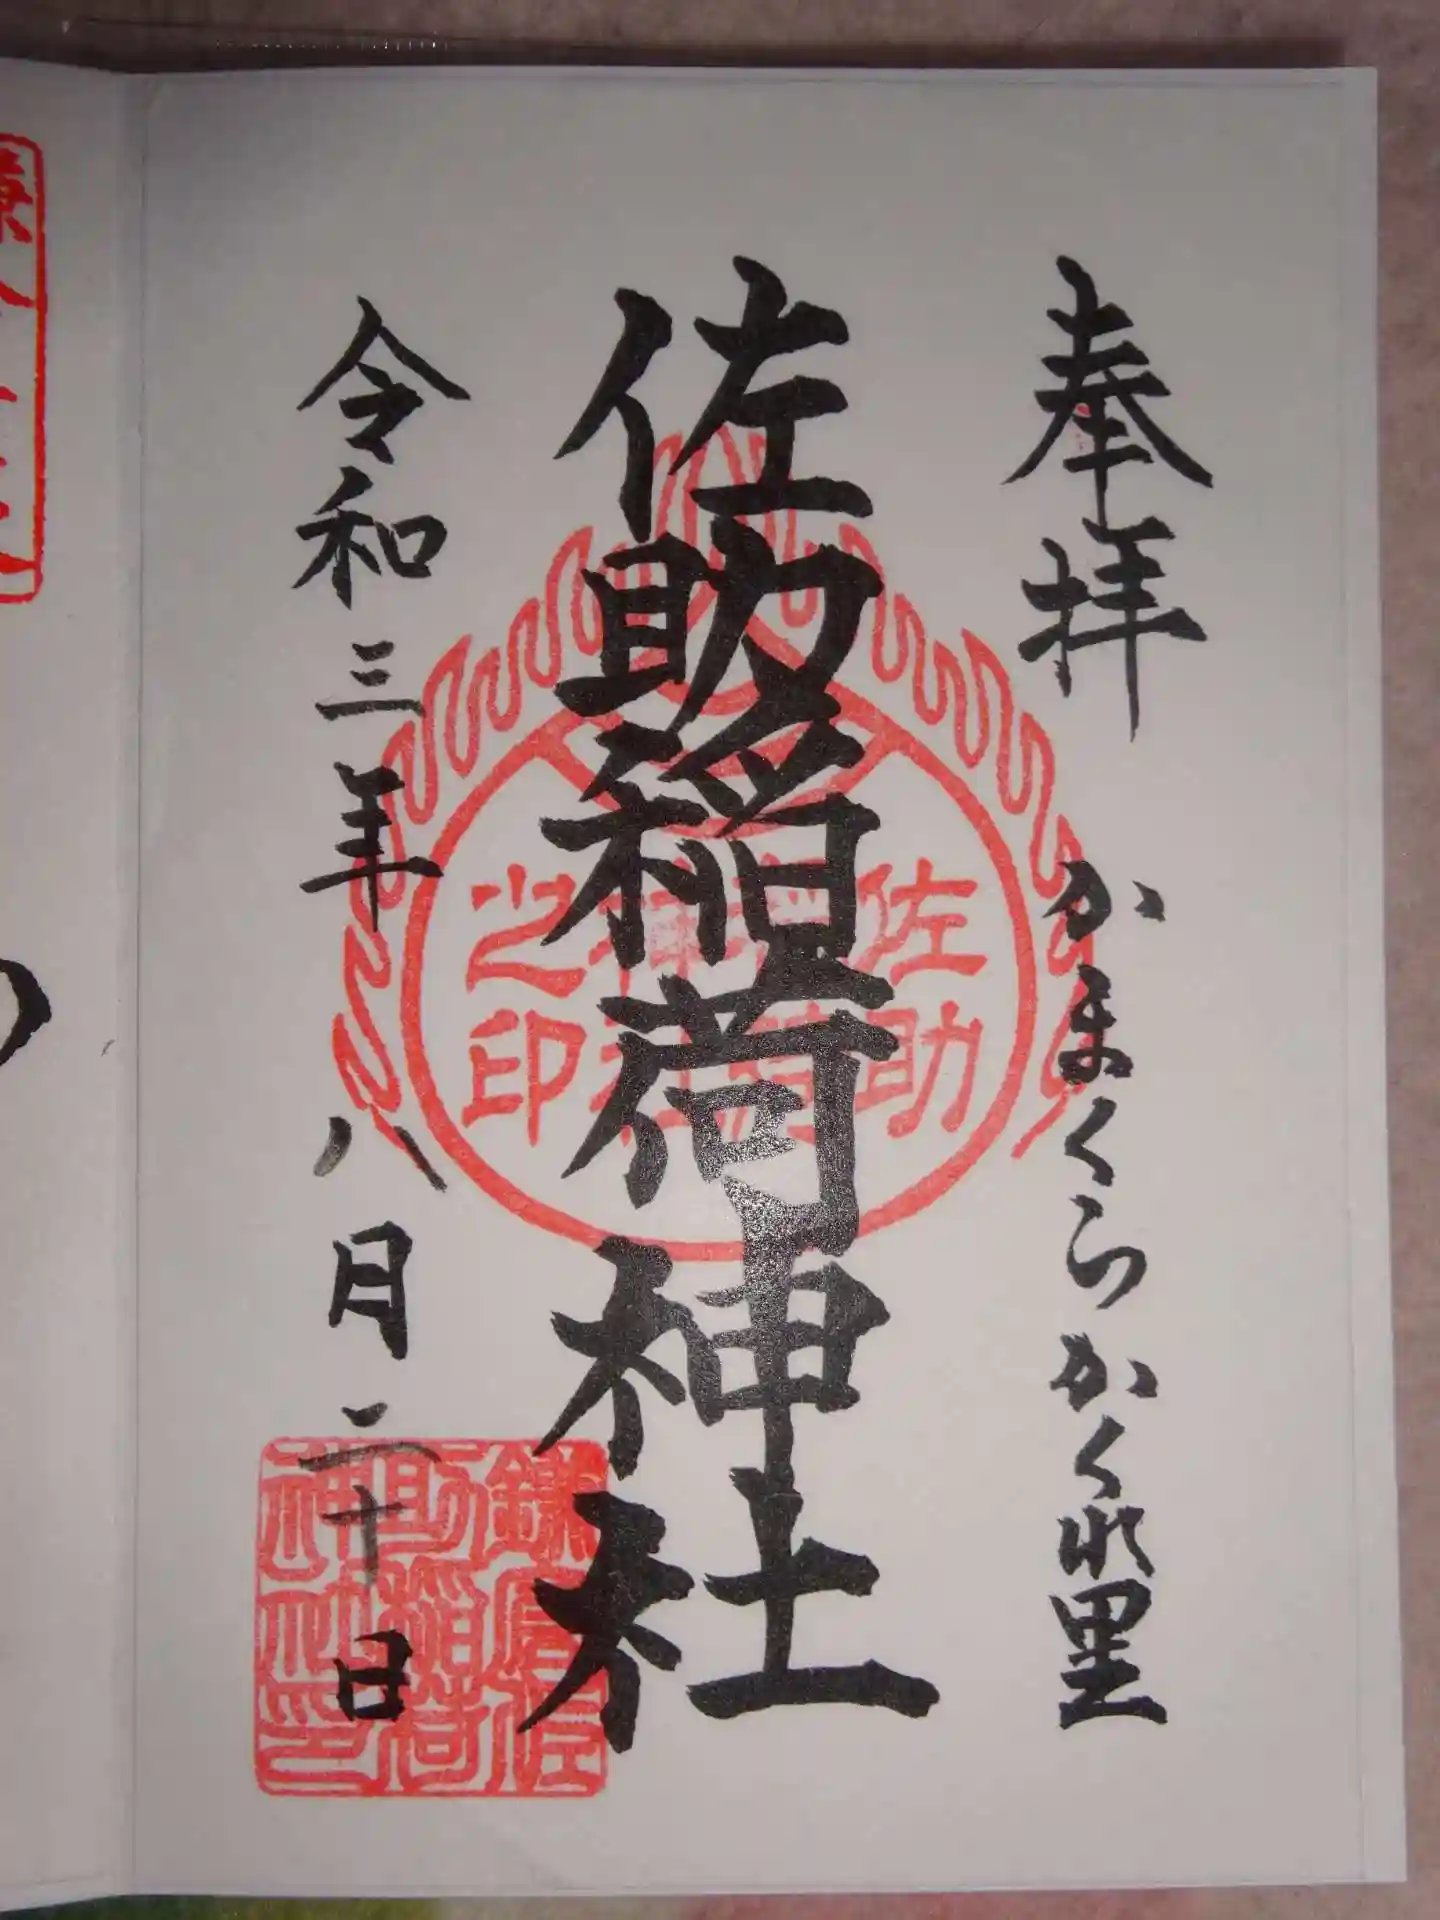 奉拝
かまくらかくれ里
佐助稲荷神社
佐助
稲荷
神社
之印
令和三年八月二十日
鎌倉佐
助稲荷
神社印